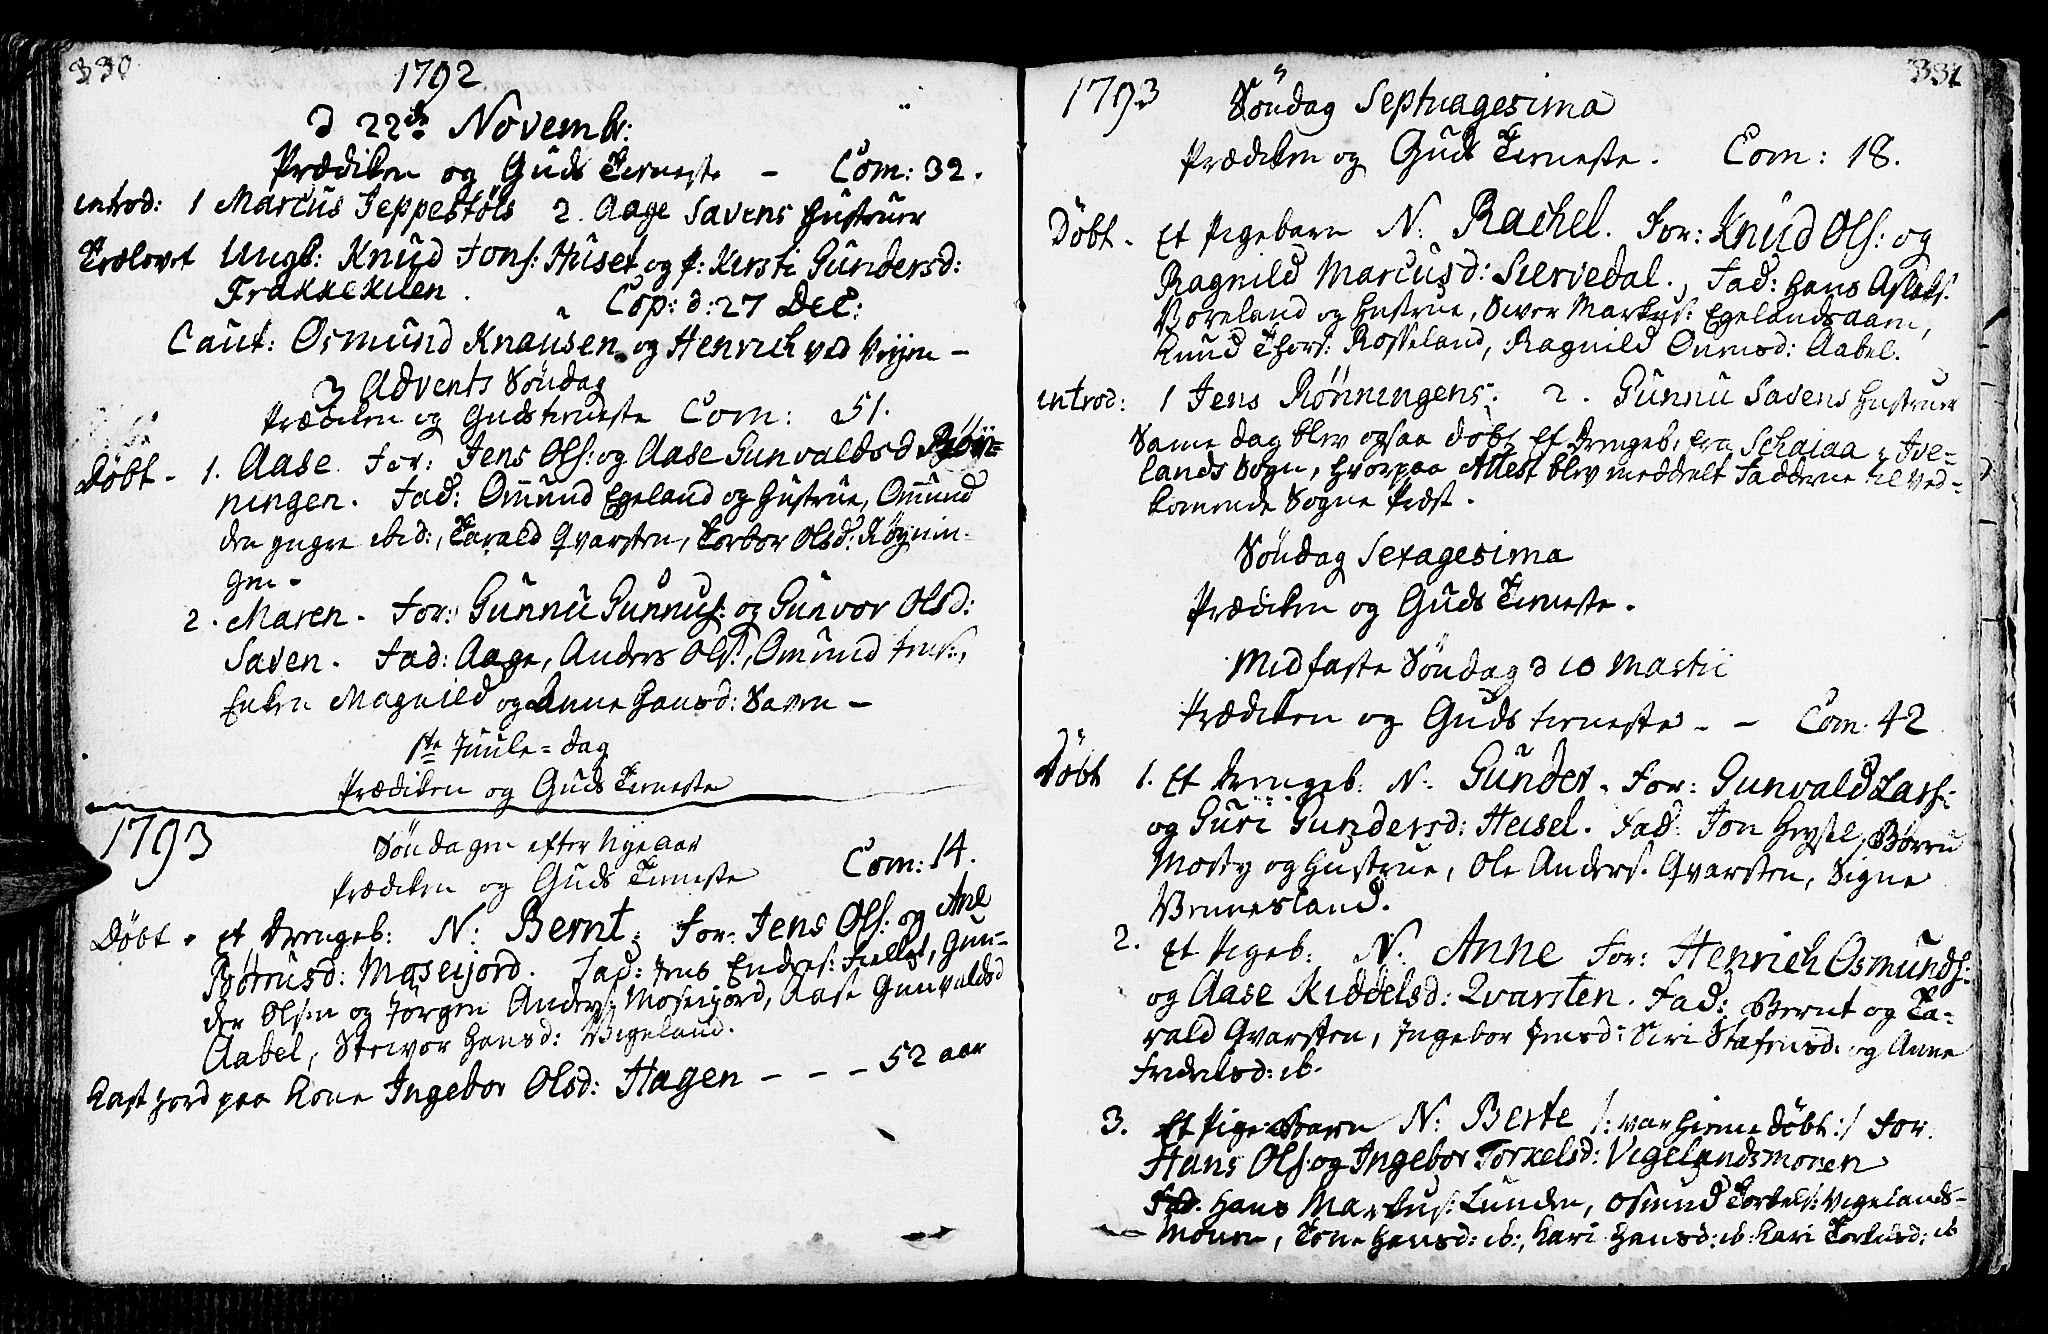 330
1792
d 22de Novembr:
Prædiken og Guds Tieneste – Com: 32.
introd: 1 Marcus Jeppestöls 2. Aage Savens Hustruer
Trolovet Ungk: Knud Jons: Huset og p: Kirsti Gundersd:
Frakkekilen. Cop: d: 27 Dec:
Caut: Osmund Knausen og Henrich ved
3 Advents Söndag
Prædiken og Guds tieneste Com: 51.
Döbt – 1. Aase. For: Jens Ols: og Aase Gunvaldsd Rön=
ningen. Fad: Omund Egeland og Hustrue, Omund
den yngre ibid:, Tarald Qvarsten, Torbor Olsd: Røynin-
gen –
2. Maren. For: Gunnu Gunnus: og Gunvor Olsd:
Saven. Fad: Aage, Anders Ols:, Omund Jens:,
Enken Magnild og Anne Hansd: Saven –
1ste Juule=dag
Prædiken og Guds Tieneste
1793
Söndagen efter Nyeaar
Prædiken og Guds Tieneste Com: 14.
Döbt. et Drengeb: N: Bernt. For: Jens Ols: og Ane
Börrusd: Moseijord. Fad: Jens Endres: Fiellet, Gun-
der Olsen og Jörgen Anders: Moseijord, Aase Gunvaldsd
Aabel, Steivor Hansd: Vigeland.
Kast Jord paa Kone Ingebor Olsd: Hagen – – – 52 aar
331
1793
Söndag Septuagesima
Prædiken og Guds Tieneste. Com: 18.
Döbt. et Pigebarn N: Rachel. For: Knud Ols: og
Ragnild Marcusd: Siervedal., Fad: Hans Aslaks:
Boreland og Hustrue, Siver Markus: Egelandsaam,
Knud Thors: Rosseland, Ragnild Onmsd: Aabel.
introd: 1 Jens Rönningens 2. Gunnu Savens Hustruer
Same dag blev ogsaa döbt et Drengeb: fra Schaiaa i Ive-
lands Sogn, hvorpaa Attest blev meddelt Fadderne til ved-
komende Sogne Præst.
Söndag Sexagesima
Prædiken og Guds Tieneste.
Midfaste Söndag d 10 Martii
Prædiken og Guds tieneste – – Com: 42
Döbt 1. Et Drengeb: N: Gunder. For: Gunvald Lars:
og Guri Gundersd: Heisel. Fad: Jon Heysel, Börru
Mosby og Hustrue, Ole Anders: Qvarsten, Signe
Vennesland.
2. Et Pigeb: N: Anne For: Henrich Osmunds:
og Aase Kiddelsd: Qvarsten. Fad: Bernt og Ta-
rald Qvarsten, Ingebor Jensd: Siri Stafensd: og Anne
Fredriksd: ib.
3. Et Pige Barn N: Berte /: var hieme döbt :/ For.
Hans Ols: og Ingebor Torkelsd: Vigelandsmonen
Fad. Hans Markus: Lunden, Osmund Torkels: Vigelands-
Monen, Tone Hansd: ib:, Kari Hansd: ib: Kari Torkelsd: ib